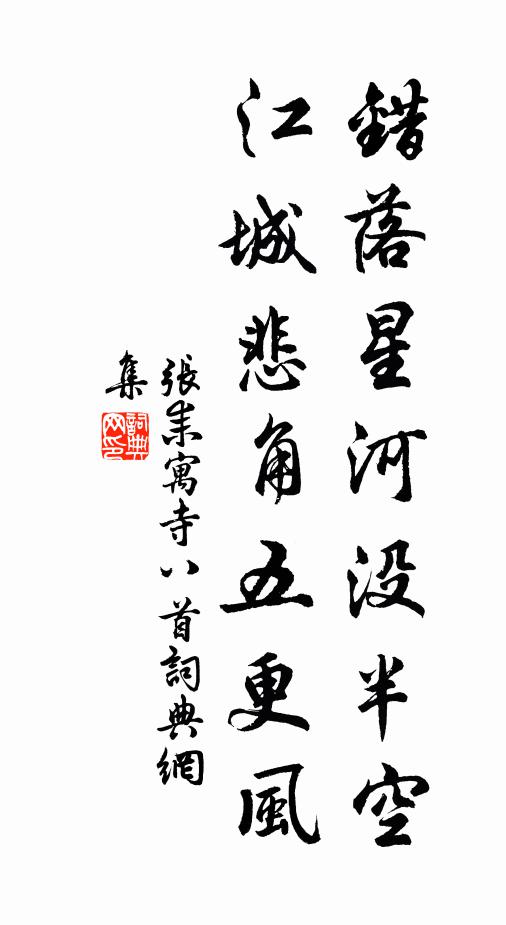 錯落星河没半空
江城悲角五更風
張耒寓寺八首詞典網
集
詞典
网印